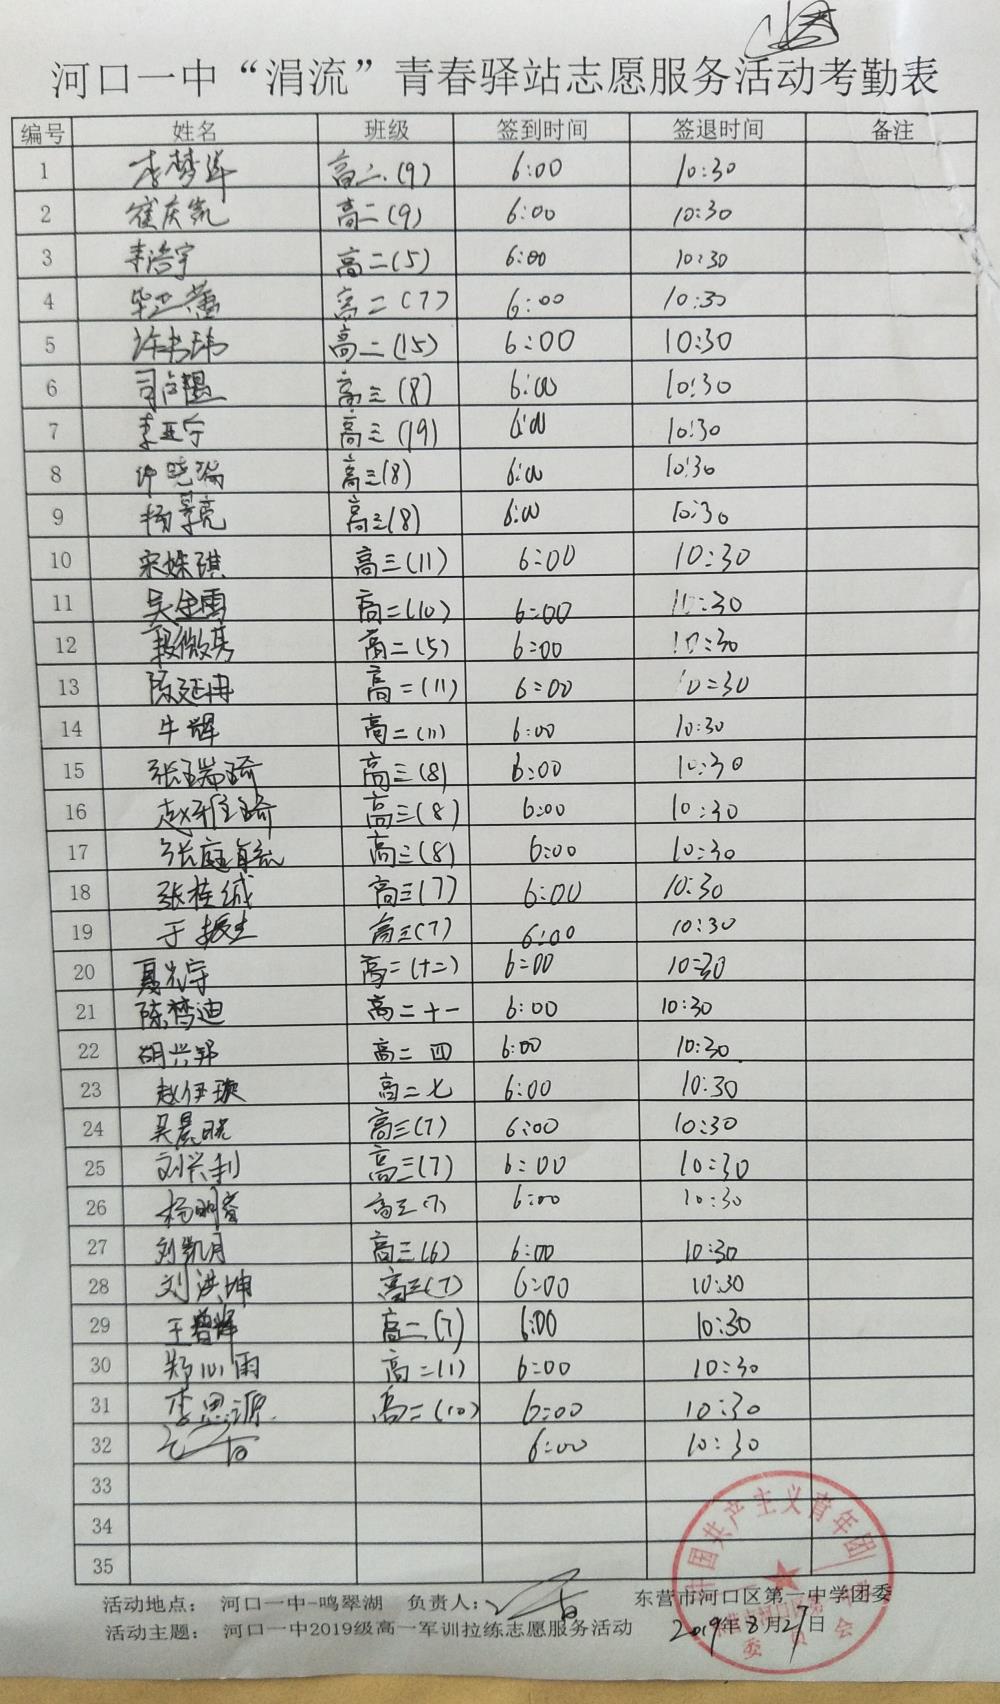 河口一中“涓流”青春驿站志愿服务活动考勤表
编号 姓名 班级 签到时间 签退时间 备注
1 高二(9) 6:00 10:30
2 崔庆凯 高二(9) 6:00 10:30
3 李浩宇 高二(5) 6:00 10:30
4 高二(7) 6:00 10:30
5 许书玮 高二(15) 6:00 10:30
6 高三(8) 6:00 10:30
7 李亚宁 高三(19) 6:00 10:30
8 许晓瑞 高三(8) 6:00 10:30
9 杨景亮 高三(8) 6:00 10:30
10 宋姝琪 高三(11) 6:00 10:30
11 吴金雪 高二(10) 6:00 10:30
12 高二(5) 6:00 10:30
13 陈延冉 高二(11) 6:00 10:30
14 牛辉 高二(11) 6:00 10:30
15 张瑞琦 高三(8) 6:00 10:30
16 赵雅琦 高三(8) 6:00 10:30
17 高三(8) 6:00 10:30
18 张桂诚 高三(7) 6:00 10:30
19 于振生 高三(7) 6:00 10:30
20 高二(十二) 6:00 10:30
21 陈梦迪 高二十一 6:00 10:30
22 胡兴邦 高二四 6:00 10:30
23 赵伊璇 高二七 6:00 10:30
24 吴晨晓 高三(7) 6:00 10:30
25 刘兴利 高三(7) 6:00 10:30
26 杨明睿 高三(7) 6:00 10:30
27 刘凯月 高三(6) 6:00 10:30
28 刘洪坤 高三(7) 6:00 10:30
29 高二(7) 6:00 10:30
30 郑心雨 高二(1) 6:00 10:30
31 李思源 高二(10) 6:00 10:30
32 6:00 10:30
33
34
35
活动地点： 河口一中-鸣翠湖 负责人： 东营市河口区第一中学团委
活动主题： 河口一中2019级高一军训拉练志愿服务活动 2019年8月27日
中国共产主义青年团
委员会